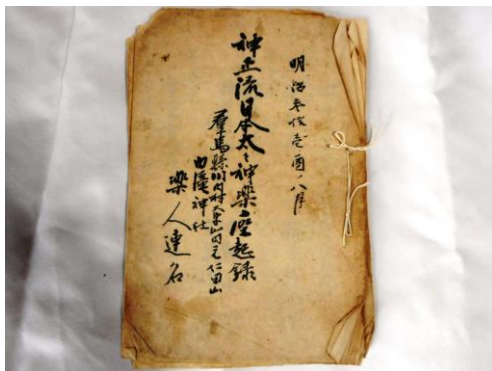 明治参拾壱酉ノ八月
神正流日本太々神楽座起録
羣馬縣川内村大字山田元仁田山
白瀧神社
楽人連名